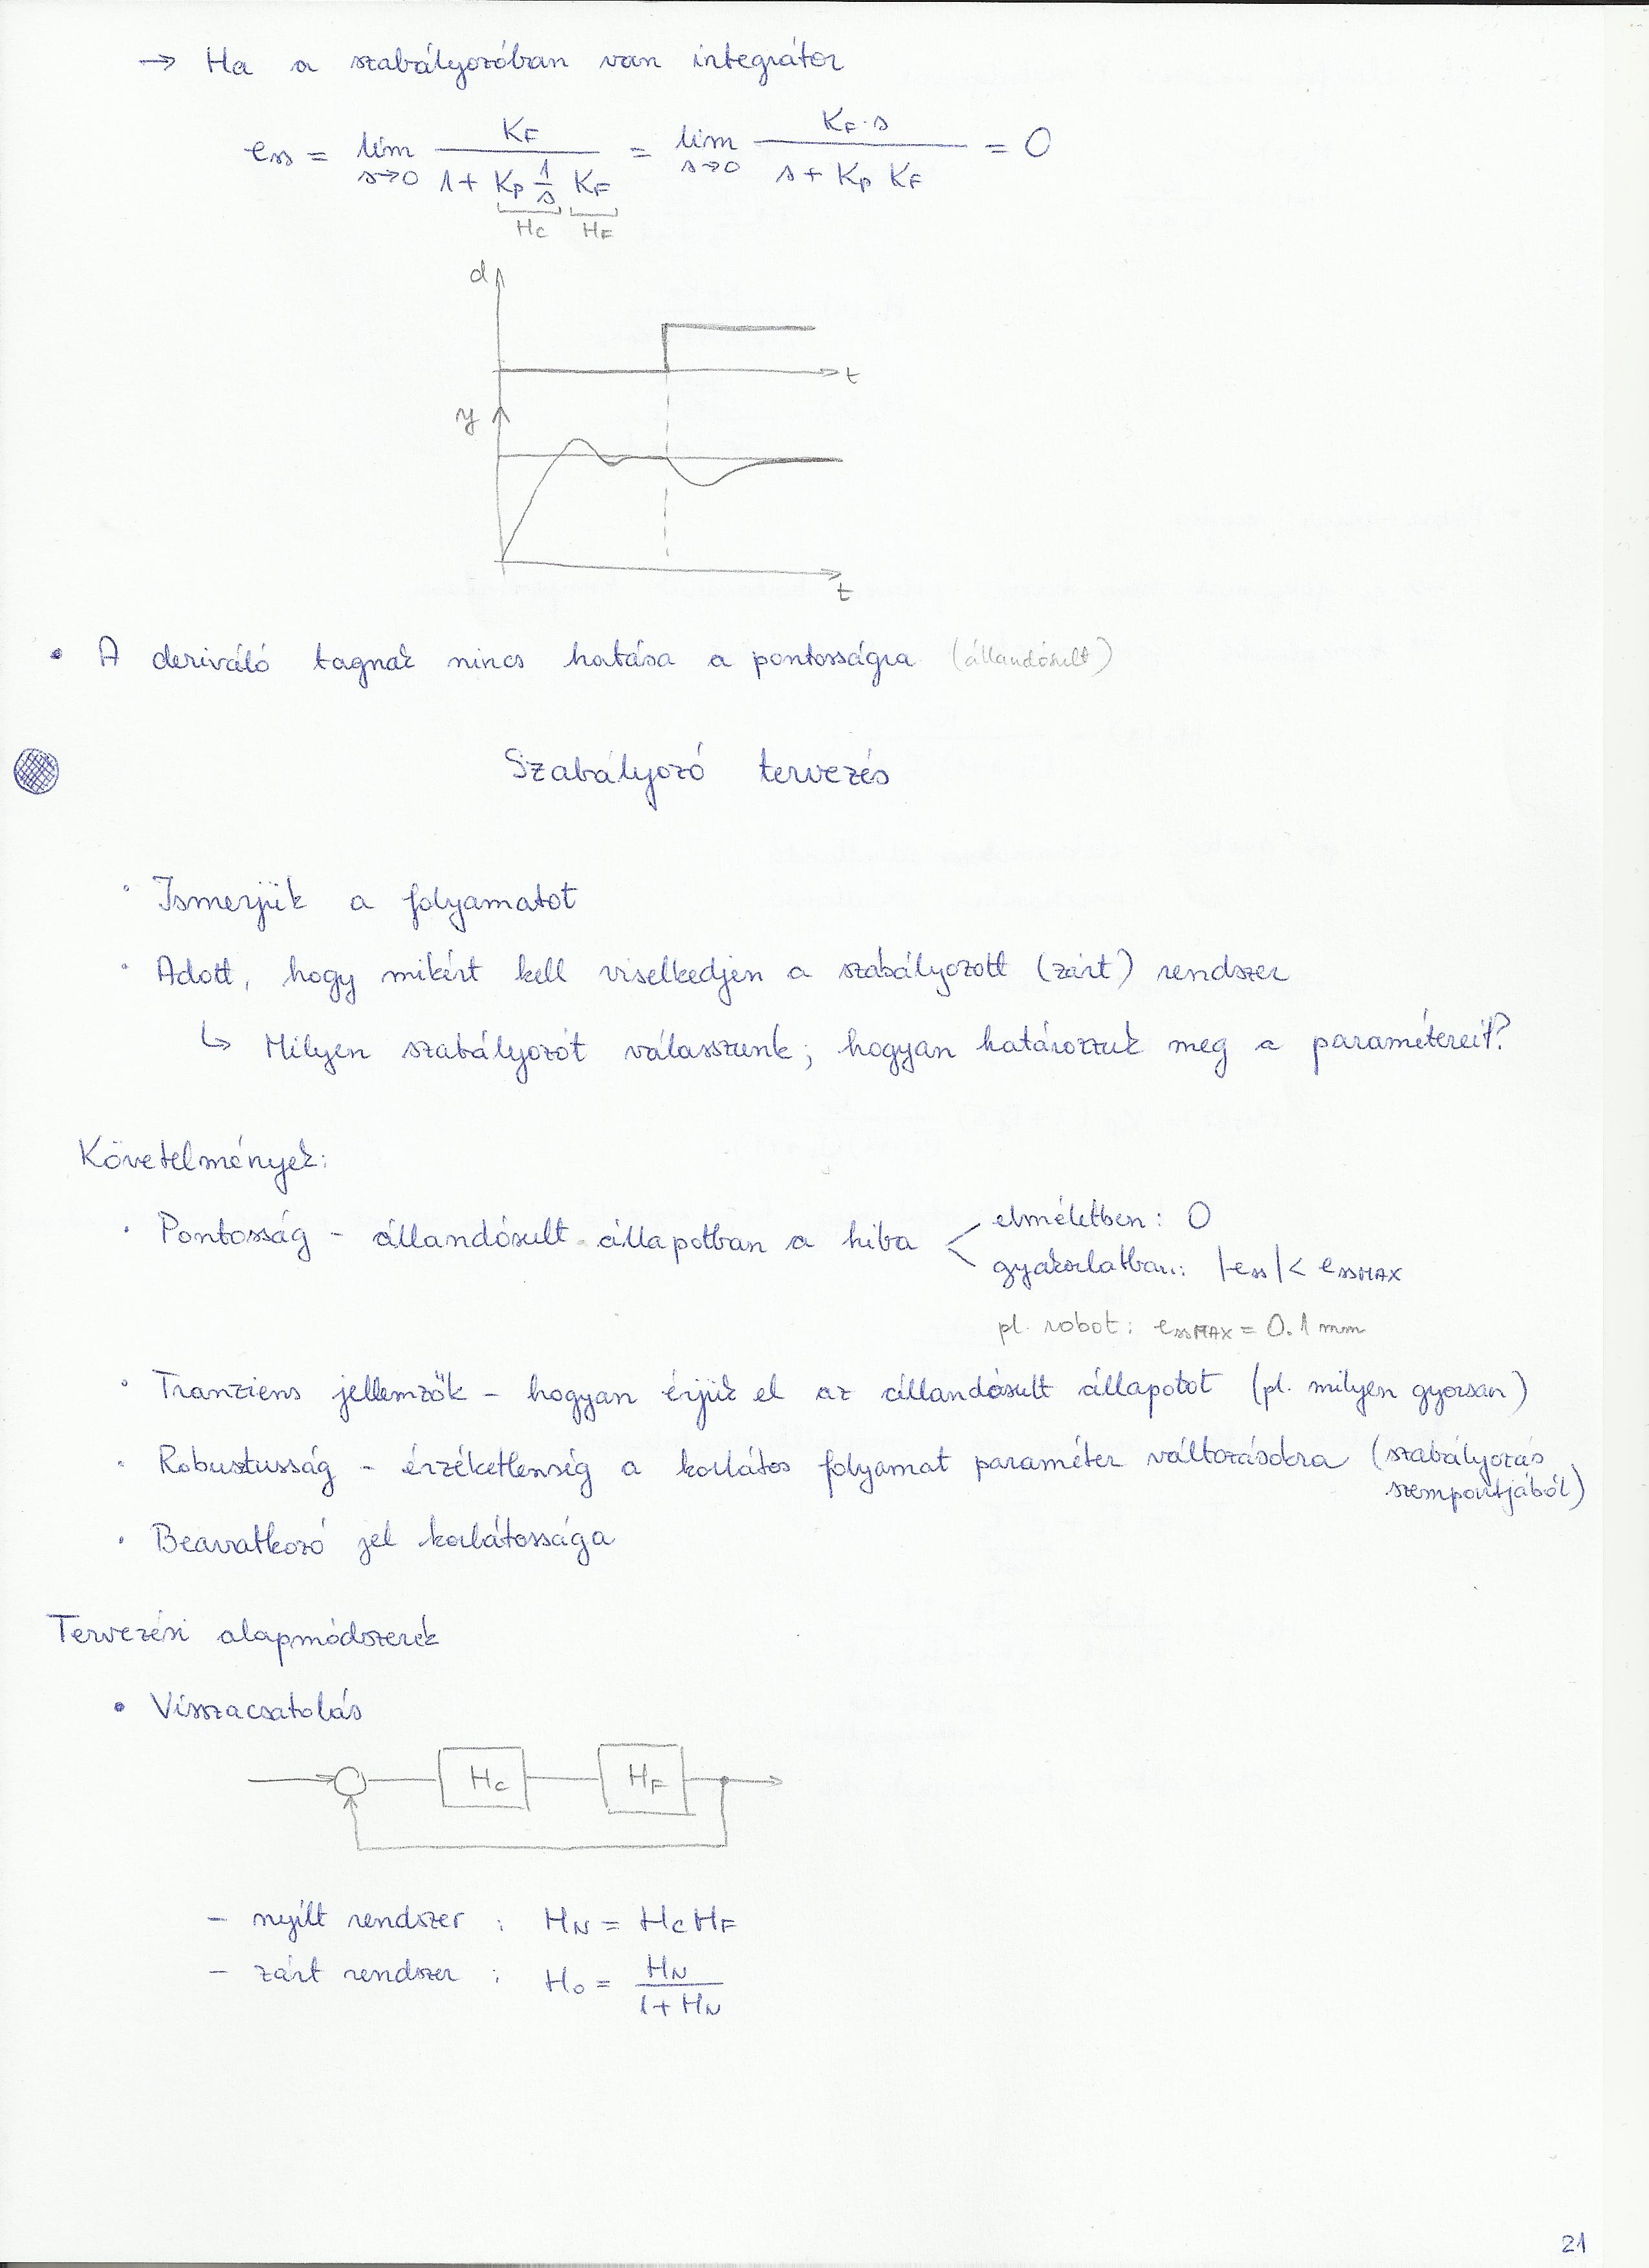 → Ha a szabályozóban van integrátor
e_ss = lim_{s→0} K_F / (1 + K_P 1/s K_F) = lim_{s→0} K_F·s / (s + K_P K_F) = 0
H_C H_F
d
t
y
t
• A deriváló tagnak nincs hatása a pontosságra (állandósult)
Szabályozó tervezés
• Ismerjük a folyamatot
• Adott, hogy miként kell viselkedjen a szabályozott (zárt) rendszer
↳ Milyen szabályozót válasszunk; hogyan határozzuk meg a paramétereit?
Követelmények:
• Pontosság - állandósult állapotban a hiba < elméletben: 0
gyakorlatban: |e_ss| < e_ssMAX
pl. robot: e_ssMAX = 0.1 mm
• Tranziens jellemzők - hogyan érjük el az állandósult állapotot (pl. milyen gyorsan)
• Robusztusság - érzéketlenség a korlátos folyamat paraméter változásokra (szabályozás
szempontjából)
• Beavatkozó jel korlátossága
Tervezési alapmódszerek
• Visszacsatolás
H_C H_F
- nyílt rendszer : H_N = H_C H_F
- zárt rendszer : H_0 = H_N / (1 + H_N)
21